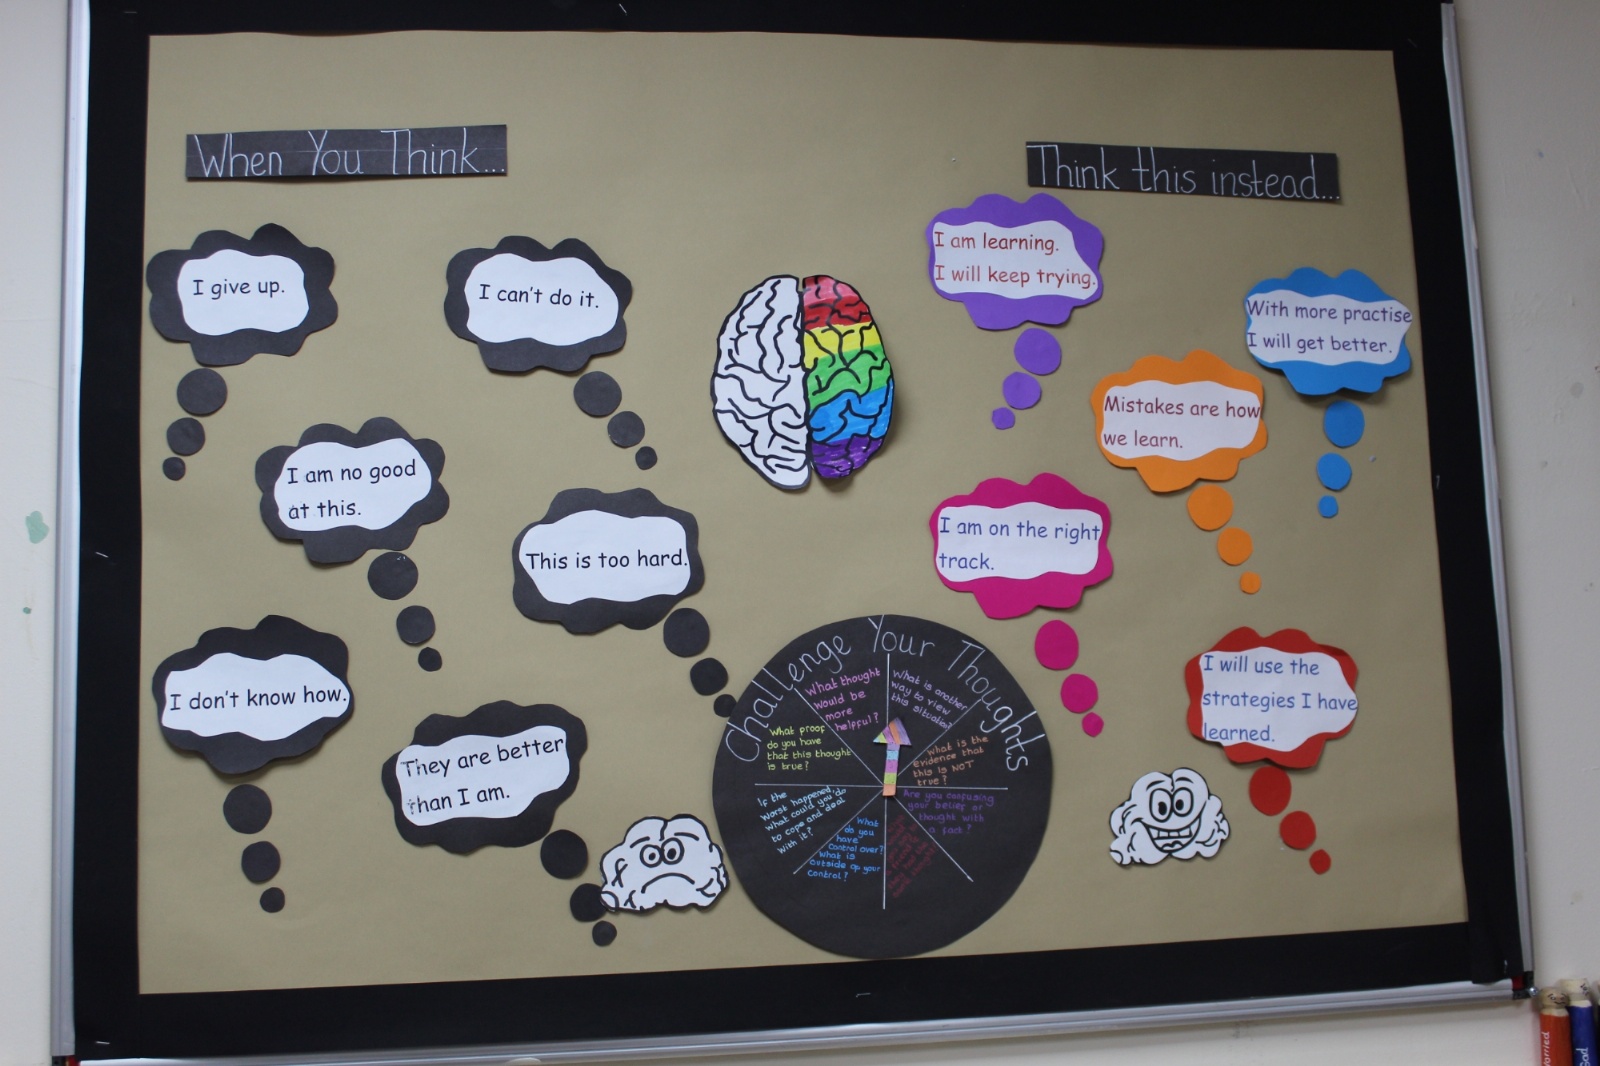 When You Think...
I give up.
I can't do it.
I am no good
at this.
This is too hard.
I don't know how.
They are better
than I am.
Think this instead...
I am learning.
I will keep trying.
With more practise
I will get better.
Mistakes are how
we learn.
I am on the right
track.
I will use the
strategies I have
learned.
Challenge Your Thoughts
What thought
would be
more
helpful?
What is another
way to view
this situation?
What is the
evidence that
this is NOT
true?
Are you confusing
your belief or
thought with
a fact?
What
do you
have
control over?
What is
outside of your
control?
If the
worst happened,
what could you do
to cope and deal
with it?
What proof
do you have
that this thought
is true?
Worried
Sad